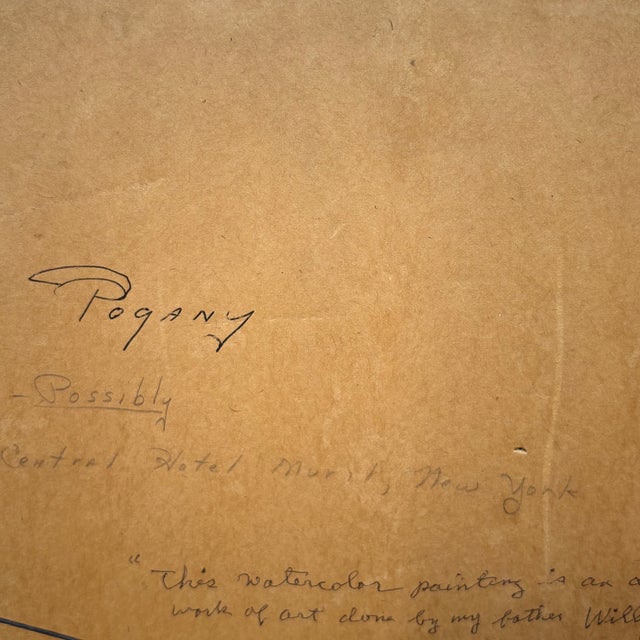 Pogany
- Possibly
Central Hotel Mural, New York
"This watercolor painting is an a
work of art done by my father Will